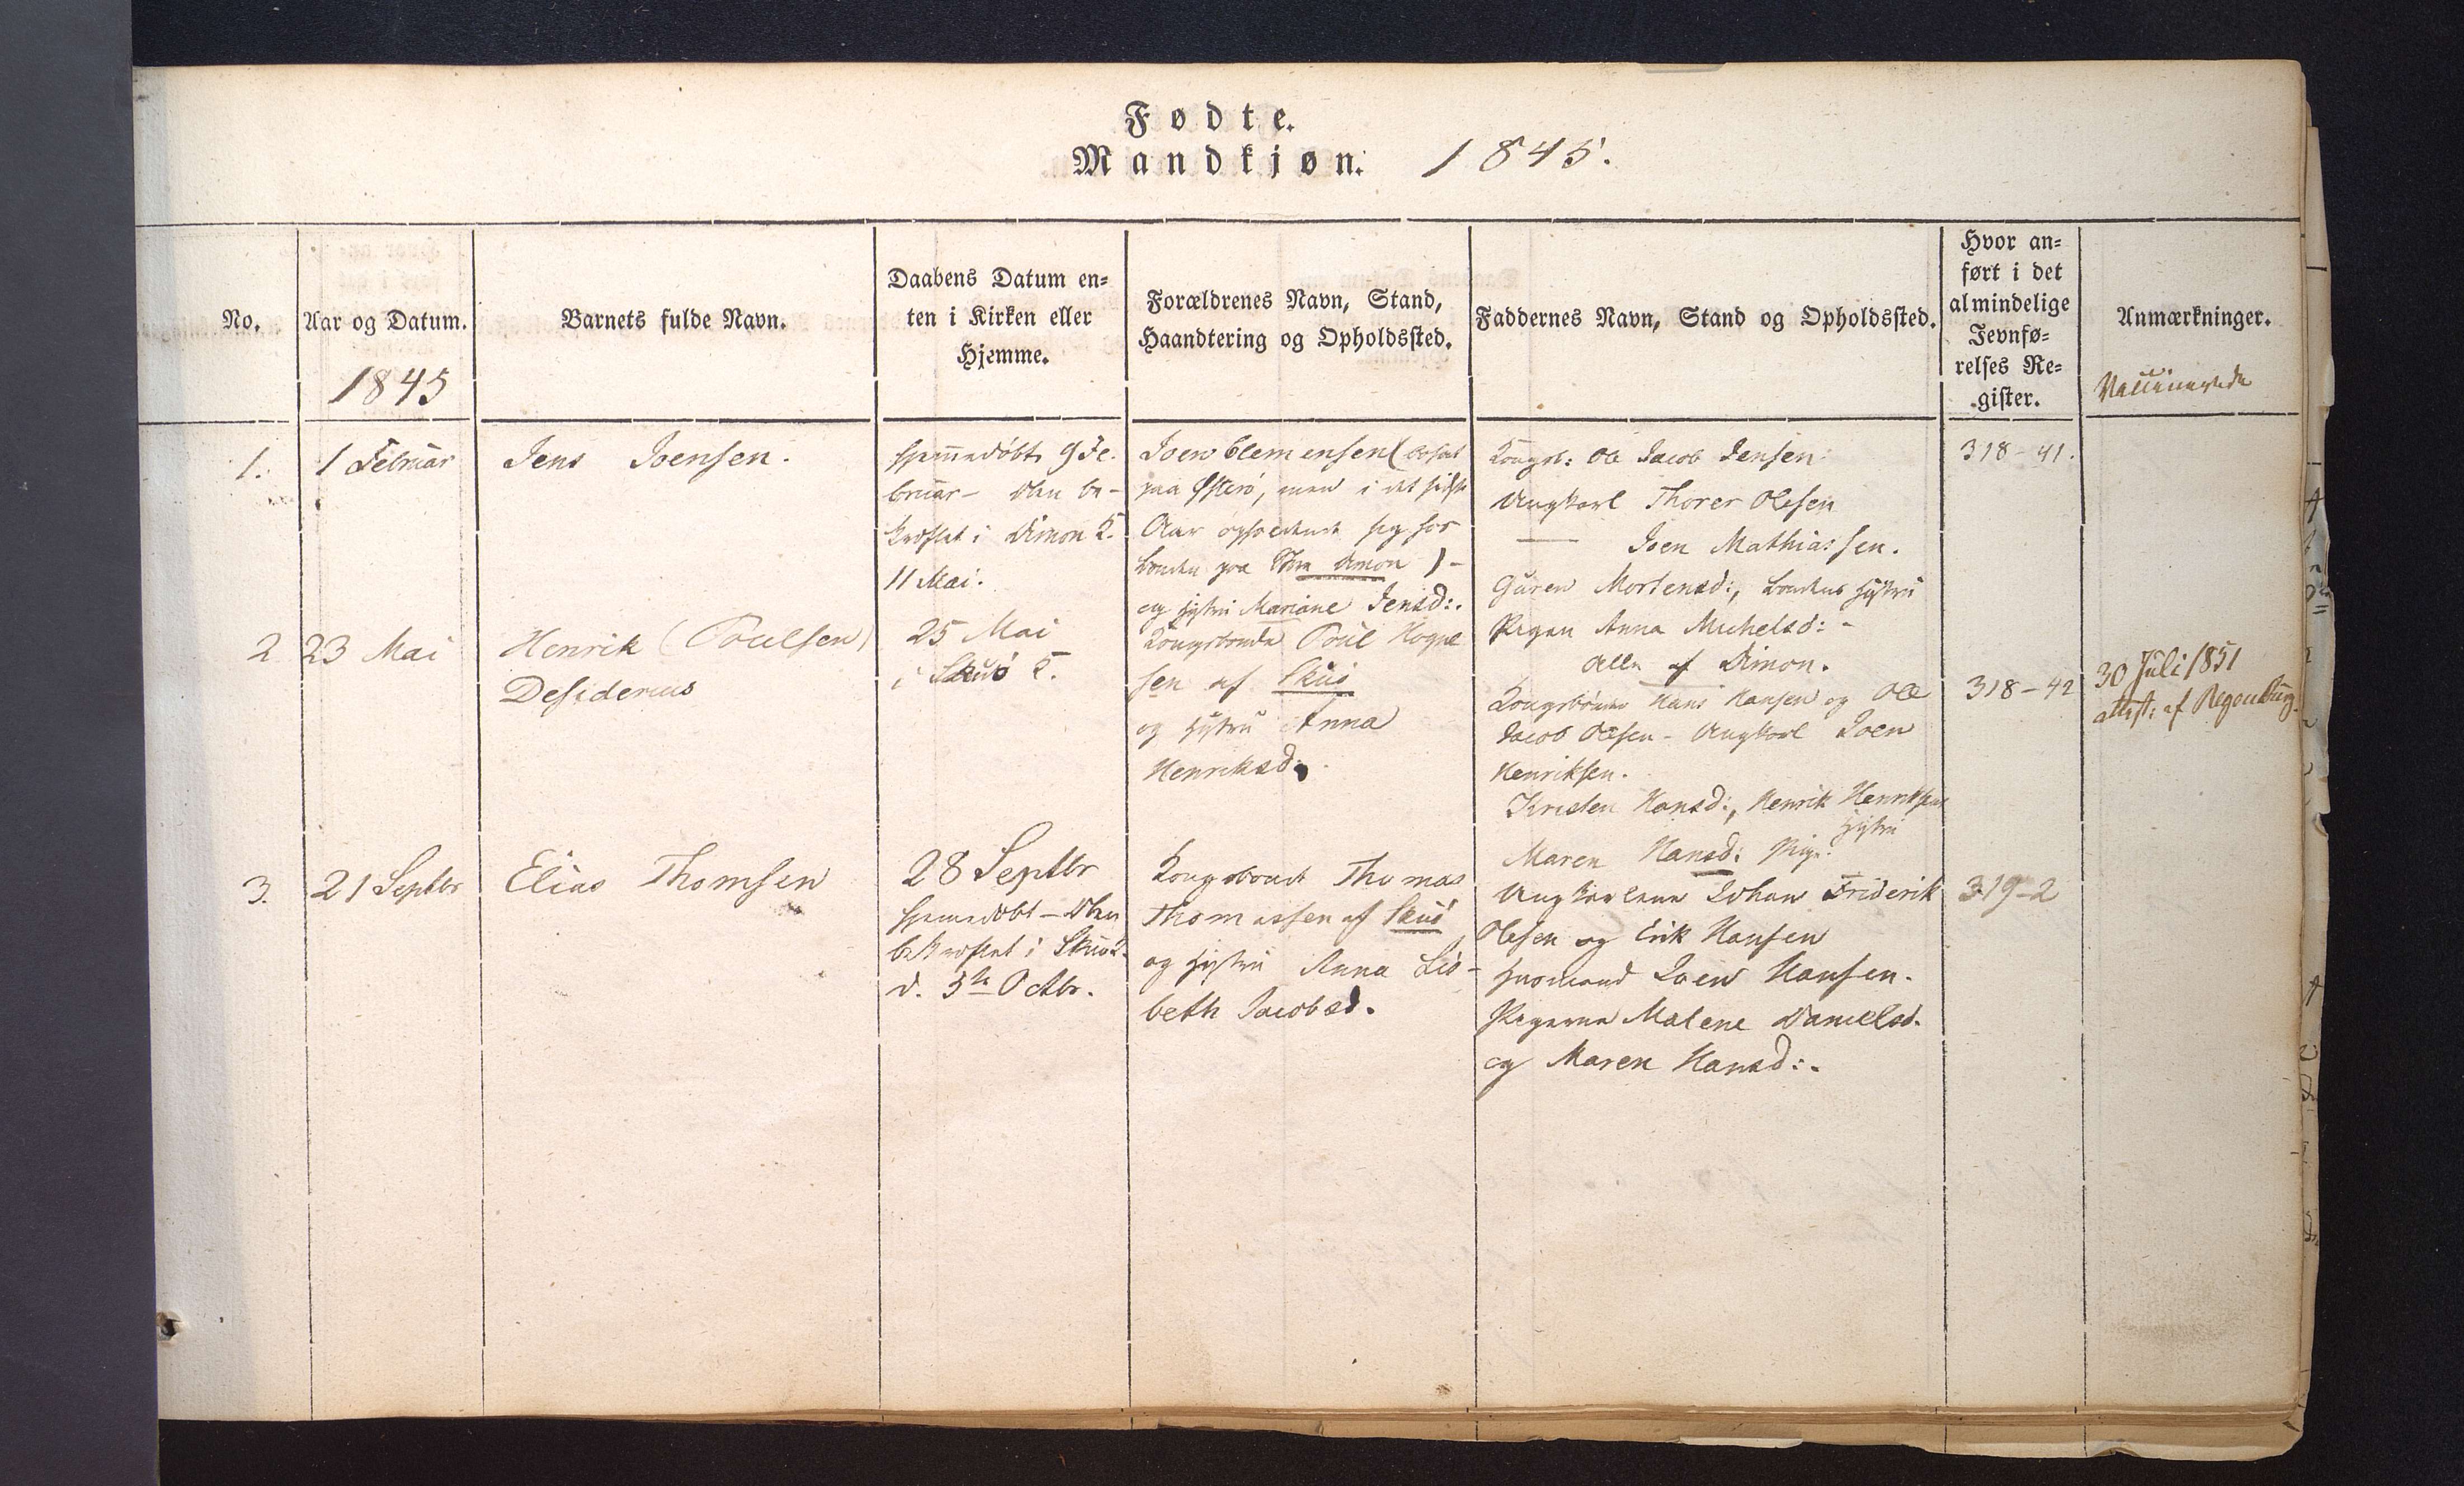 Fødte.
Mandkjøn. 1845.
No.
Aar og Datum.
1845
Barnets fulde Navn.
Daabens Datum en-
ten i Kirken eller
Hjemme.
Forældrenes Navn, Stand,
Haandtering og Opholdssted.
Faddernes Navn, Stand og Opholdssted.
Hvor an-
ført i det
almindelige
Jevnfø-
relses Re-
gister.
Anmærkninger.
Vaccinerede
1.
1 Februar
Jens Joensen.
Hjemmedøbt 9 Fe-
bruar- blev be-
kræftet i Dimon K.
11 Mai.
Joen Clemensen (bosat
paa Østerø, men i det sidste
Aar opholdende sig hos
Bonden paa Store Dimon) -
og Hustru Mariane Jensd:.
Kongsb: Ole Jacob Jensen
Ungkarl Thorer Olesen
— Joen Mathiassen.
Guren Mortensd:, Bondens Hustru
Pigen Anna Michelsd: -
Alle af Dimon.
318-41.
2
23 Mai
Henrik (Poulsen)
Desiderius
25 Mai
i Skuø K.
Kongsbonde Poul Hogne
sen af Skuø
og Hustru Anna
Henriksd.
Kongsbønder Hans Hansen og Ole
Jacob Olesen - Ungkarl Joen
Henriksen.
Kristen Hansd:, Henrik Henriksens
Hustru
Maren Hansd: Pige.
318-42
30 Juli 1851
attest: af Regenburg.
3.
21 Septbr
Elias Thomsen
28 Septbr
hjemmedøbt - blev
bekræftet i Skuø K.
d. 5te Octbr.
Kongsbonde Thomas
Thomassen af Skuø
og Hustru Anna Lis-
beth Jacobsd.
Ungkarlene Johan Friderik
Olesen og Erik Hansen
Huusmand Joen Hansen.
Pigerne Malene Danielsd.
og Maren Hansd:.
319-2